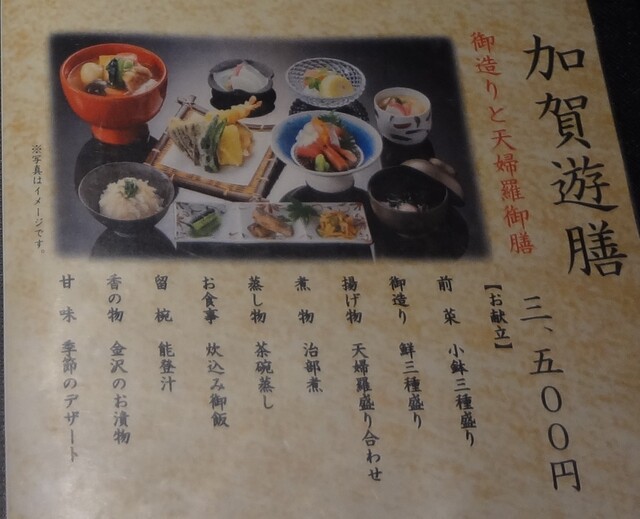 加賀遊膳
三、五〇〇円
御造りと天婦羅御膳
【お献立】
前菜 小鉢三種盛り
御造り 鮮三種盛り
揚げ物 天婦羅盛り合わせ
煮物 治部煮
蒸し物 茶碗蒸し
お食事 炊込み御飯
留椀 能登汁
香の物 金沢のお漬物
甘味 季節のデザート
※写真はイメージです。